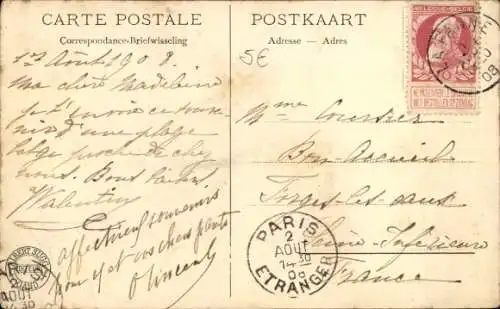 CARTE POSTALE
Correspondance-Briefwisseling
1er Août 1908
Ma chère Madeleine
je t'envoie ce souve-
nir d'une plage
belge proche de chez
nous. Bons baisers
Valentin
Affectueux souvenirs
pour et vos chers parents
Vincent
POSTKAART
Adresse — Adres
5€
Mme
Bon Accueil
Forges-les-eaux
Seine Inférieure
France
BELGIQUE·BELGIË
NE PAS LIVRER LE DIMANCHE
NIET BESTELLEN OP ZONDAG
08
PARIS
2
AOUT
14 30
08
ETRANGER
2
AOUT